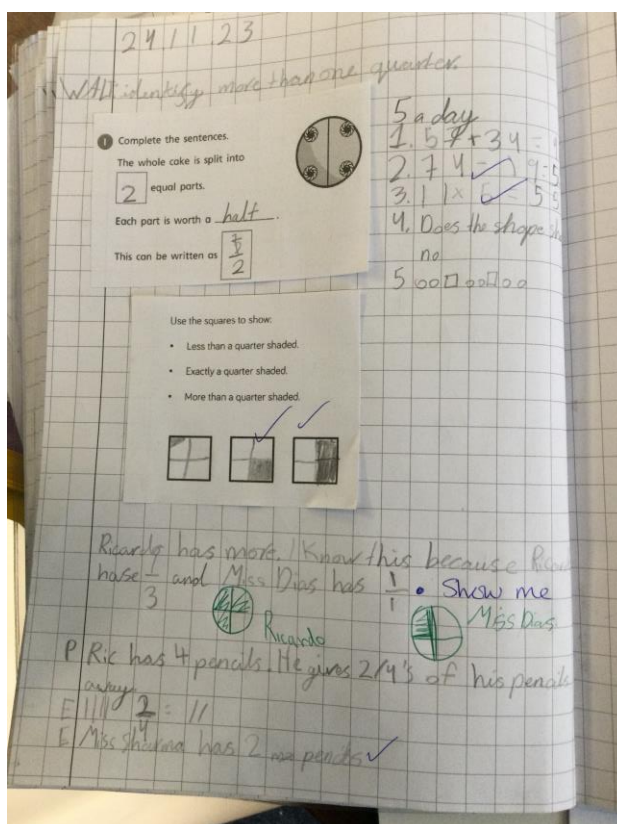 24.11.23
WALT identify more than one quarter.
1 Complete the sentences.
The whole cake is split into
2 equal parts.
Each part is worth a half.
This can be written as 1/2
5 a day
1. 57+34 =
2. 74 - 19=5
3. 11 x 5 = 55
4. Does the shape
no
5
Use the squares to show:
• Less than a quarter shaded.
• Exactly a quarter shaded.
• More than a quarter shaded.
Ricardo has more. I know this because
hase 1/3 and Miss Dias has 1/1 . Show me
Ricardo
Miss Dias
P Ric has 4 pencils. He gives 2/4's of his pencils
away.
E |||| 2/4 = ||
E Miss Sharma has 2 pencils